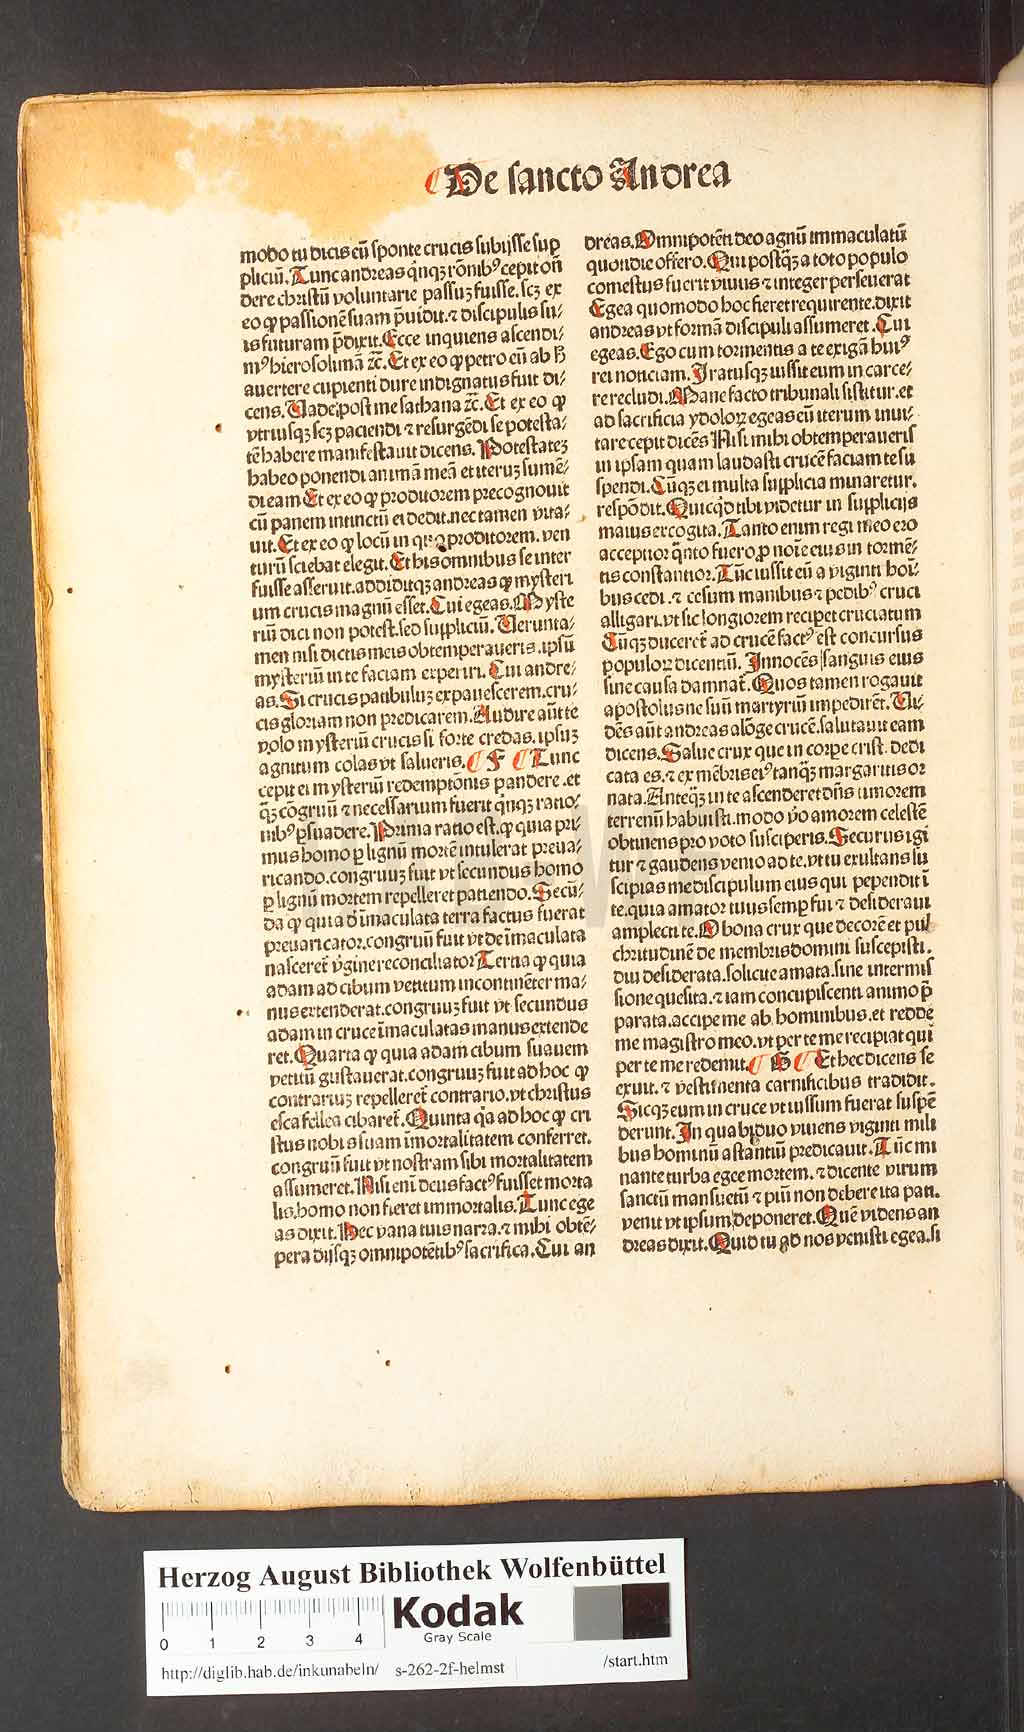 De sancto Andrea
modo tu dicis eū sponte crucis subijsse sup
pliciū. Tunc andreas q̇nqꝫ rōnibꝰ cepit oñ
dere christū voluntarie passuꝫ fuisse. scꝫ ex
eo ꝙ passionē suam p̄uidit. ⁊ discipulis su⸗
is futuram p̄dixit. Ecce inquiens ascendi⸗
mꝰ hierosolimā ⁊c̄. Et ex eo ꝙ petro eū ab ꝭ
auertere cupienti dure indignatus fuit di⸗
cens. Vade post me sathana ⁊c̄. Et ex eo ꝙ
vtriusqꝫ scꝫ paciendi ⁊ resurgēdi se potesta⸗
tē habere manifestauit dicens. Potestateꝫ
habeo ponendi animā meā et iteruꝫ sumē⸗
di eam Et ex eo ꝙ proditorem precognouit
cū panem intinctū ei dedit. nec tamen vita⸗
uit. Et ex eo ꝙ locū in quo proditorem. ven
turū sciebat elegit. Et his omnibus se inter
fuisse asseruit. addiditqꝫ andreas ꝙ mysteri
um crucis magnū esset. Cui egeas. Myste
riū dici non potest. sed suppliciū. Verunta⸗
men nisi dictis meis obtemperaueris. ipsū
mysteriū in te faciam experiri. Cui andre⸗
as. Si crucis patibuluꝫ expauescerem. cru⸗
cis gloriam non predicarem. Audire aūt te
volo mysteriū crucis si forte credas. ipsuꝫ
agnitum colas vt salueris. F Tunc
cepit ei mysteriū redemptōnis pandere. et
q̄ꝫ cōgruū ⁊ necessarium fuerit q̇nqꝫ ratio⸗
nibꝰ ꝑsuadere. Prima ratio est. ꝙ quia pri⸗
mus homo ꝑ lignū mortē intulerat preua⸗
ricando. congruuꝫ fuit vt secundus homo
ꝑ lignū mortem repelleret patiendo. Secū⸗
da ꝙ quia d̓ īmaculata terra factus fuerat
preuaricator. congruū fuit vt de īmaculata
nasceret̃ v̓gine reconciliator Tertia ꝙ quia
adam ad cibum vetitum incontinēter ma⸗
nus extenderat. congruuꝫ fuit vt secundus
adam in cruce īmaculatas manus extende
ret. Quarta ꝙ quia adam cibum suauem
vetitū gustauerat. congruuꝫ fuit ad hoc ꝙ
contrariuꝫ repelleret̃ contrario. vt christus
esca fellea cibaret̃. Quinta q̇a ad hoc ꝙ cri
stus nobis suam īmortalitatem conferret.
congruū fuit vt nostram sibi mortalitatem
assumeret. Nisi enī deus factꝰ fuisset morta
lis. homo non fieret immortalis. Tunc ege
as dixit. Hec vana tuis narra. ⁊ mihi obtē⸗
pera dijsqꝫ omnipotētibꝰ sacrifica. Cui an
dreas. Omnipotēti deo agnū immaculatū
quotidie offero. Qui postq̄ꝫ a toto populo
comestus fuerit viuus ⁊ integer perseuerat
Egea quomodo hoc fieret requirente. dixit
andreas vt formā discipuli assumeret. Cui
egeas. Ego cum tormentis a te exigā huiꝰ
rei noticiam. Iratusqꝫ iussit eum in carce⸗
re recludi. Mane facto tribunali sistitur. et
ad sacrificia ydoloꝝ egeas eū iterum inui⸗
tare cepit dicēs Nisi mihi obtemperaueris
in ipsam quam laudasti crucē faciam te su
spendi. Cūqꝫ ei multa supplicia minaretur.
respōdit. Quicq̇d tibi videtur in supplicijs
maius excogita. Tanto enim regi meo ero
acceptior q̄nto fuero ꝓ noīe eius in tormē⸗
tis constantior. Tūc iussit eū a viginti hoī⸗
bus cedi. ⁊ cesum manibus ⁊ pedibꝰ cruci
alligari. vt sic longiorem reciperet cruciatum
Cūqꝫ duceret̃ ad crucē factꝰ est concursus
populoꝝ dicentiū. Innocēs sanguis eius
sine causa damnat̃. Quos tamen rogauit
apostolus ne suū martyriū impedirēt. Vi⸗
dēs aūt andreas a lōge crucē. salutauit eam
dicens. Salue crux que in corꝑe crist. dedi
cata es. ⁊ ex mēbris eiꝰ tanq̄ꝫ margaritis or
nata. Anteq̄ꝫ in te ascenderet dn̄s timorem
terrenū habuisti. modo v̓o amorem celestē
obtinens pro voto susciperis. Securus igi
tur ⁊ gaudens venio ad te. vt tu exultans su
scipias me discipulum eius qui pependit ī
te. quia amator tuus semꝑ fui ⁊ desideraui
amplecti te. O bona crux que decorē et pul
chritudinē de membris domini suscepisti.
diu desiderata. solicite amata. sine intermis
sione quesita. ⁊ iam concupiscenti animo p̄
parata. accipe me ab hominibus. et redde
me magistro meo. vt per te me recipiat qui
per te me redemit. G Et hec dicens se
exuit. ⁊ vestimenta carnificibus tradidit.
Sicqꝫ eum in cruce vt iussum fuerat suspē
derunt. In qua biduo viuens viginti mili
bus hominū astantiū predicauit. Tūc mi
nante turba egee mortem. ⁊ dicente virum
sanctū mansuetū ⁊ piū non debere ita pati.
venit vt ipsum deponeret. Quē videns an
dreas dixit. Quid tu ad nos venisti egea. si
Herzog August Bibliothek Wolfenbüttel
0 1 2 3 4
Kodak
Gray Scale
http://diglib.hab.de/inkunabeln/ s-262-2f-helmst /start.htm